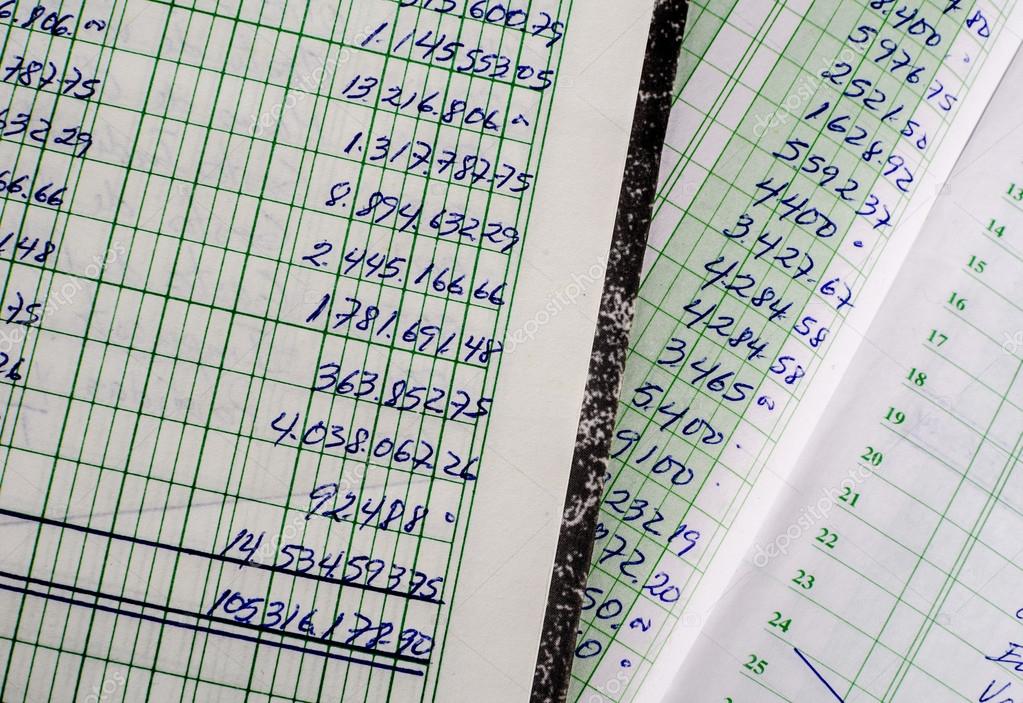 6.806.
1.145.553.05
787.75
13.216.806.
632.29
1.317.787.75
66.66
8.894.632.29
1.48
2.445.166.66
75
1.781.691.48
26
363.852.75
4.038.067.26
92.488
14.534.593.75
105.316.178.90
8400
5976.75
2521.50
1628.92
5592.37
4400.
3.427.67
4.284.58
4284.58
3.465
5.400.
9100
232.19
972.20
50.
0
13
14
15
16
17
18
19
20
21
22
23
24
25
depositphotos